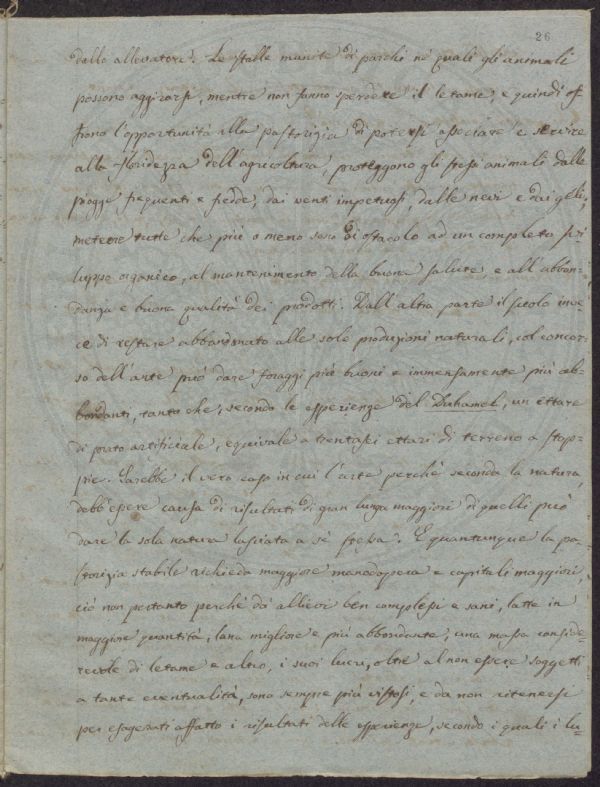 26
dallo allevatore. Le stalle munite di parchi ne' quali gli animali
possono aggirarsi, mentre non fanno sperdere il letame, e quindi of
frono l'opportunità alla pastorizia di potersi associare e servire
alla floridezza dell'agricoltura, proteggono gli stessi animali dalle
piogge frequenti e fredde, dai venti impetuosi, dalle nevi e dai geli,
meteore tutte che più o meno sono di ostacolo ad un completo svi-
luppo organico, al mantenimento della buona salute, e all'abbon-
danza e buona qualità dei prodotti. Dall'altra parte il suolo inve-
ce di restare abbandonato alle sole produzioni naturali, col concor-
so dell'arte può dare foraggi più buoni e immensamente più ab-
bondanti, tanto che, secondo le esperienze del Duhamel, un ettare
di prato artificiale, equivale a trentasei ettari di terreno a stop-
pie. Sarebbe il vero caso in cui l'arte perchè seconda la natura,
debb'essere causa di risultati di gran lunga maggiori di quelli può
dare la sola natura lasciata a sè stessa. E quantunque la pa-
storizia stabile richieda maggiore manodopera e capitali maggiori,
ciò non pertanto perchè dà allievi ben complessi e sani, latte in
maggiore quantità, lana migliore e più abbondante, una massa conside-
revole di letame e altro, i suoi lucri, oltre al non essere soggetti
a tante eventualità, sono sempre più vistosi, e da non ritenersi
per esagerati affatto i risultati delle esperienze, secondo i quali i lu-